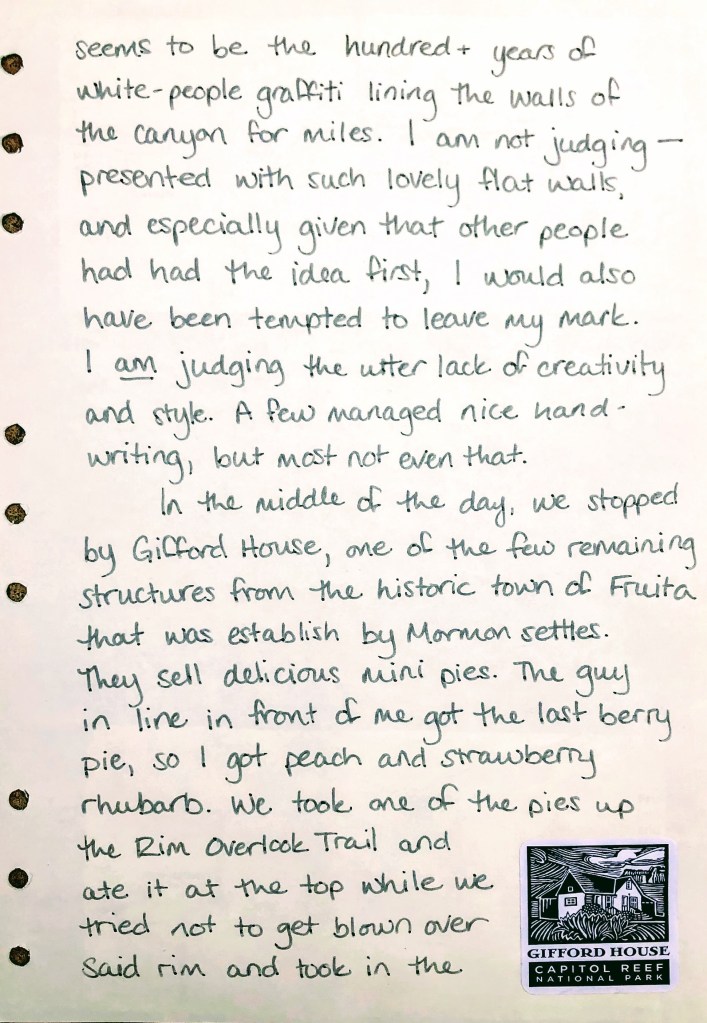 seems to be the hundred+ years of
white-people graffiti lining the walls of
the canyon for miles. I am not judging —
presented with such lovely flat walls,
and especially given that other people
had had the idea first, I would also
have been tempted to leave my mark.
I am judging the utter lack of creativity
and style. A few managed nice hand-
writing, but most not even that.
In the middle of the day, we stopped
by Gifford House, one of the few remaining
structures from the historic town of Fruita
that was establish by Mormon settles.
They sell delicious mini pies. The guy
in line in front of me got the last berry
pie, so I got peach and strawberry
rhubarb. We took one of the pies up
the Rim Overlook Trail and
ate it at the top while we
tried not to get blown over
said rim and took in the
GIFFORD HOUSE
CAPITOL REEF
NATIONAL PARK